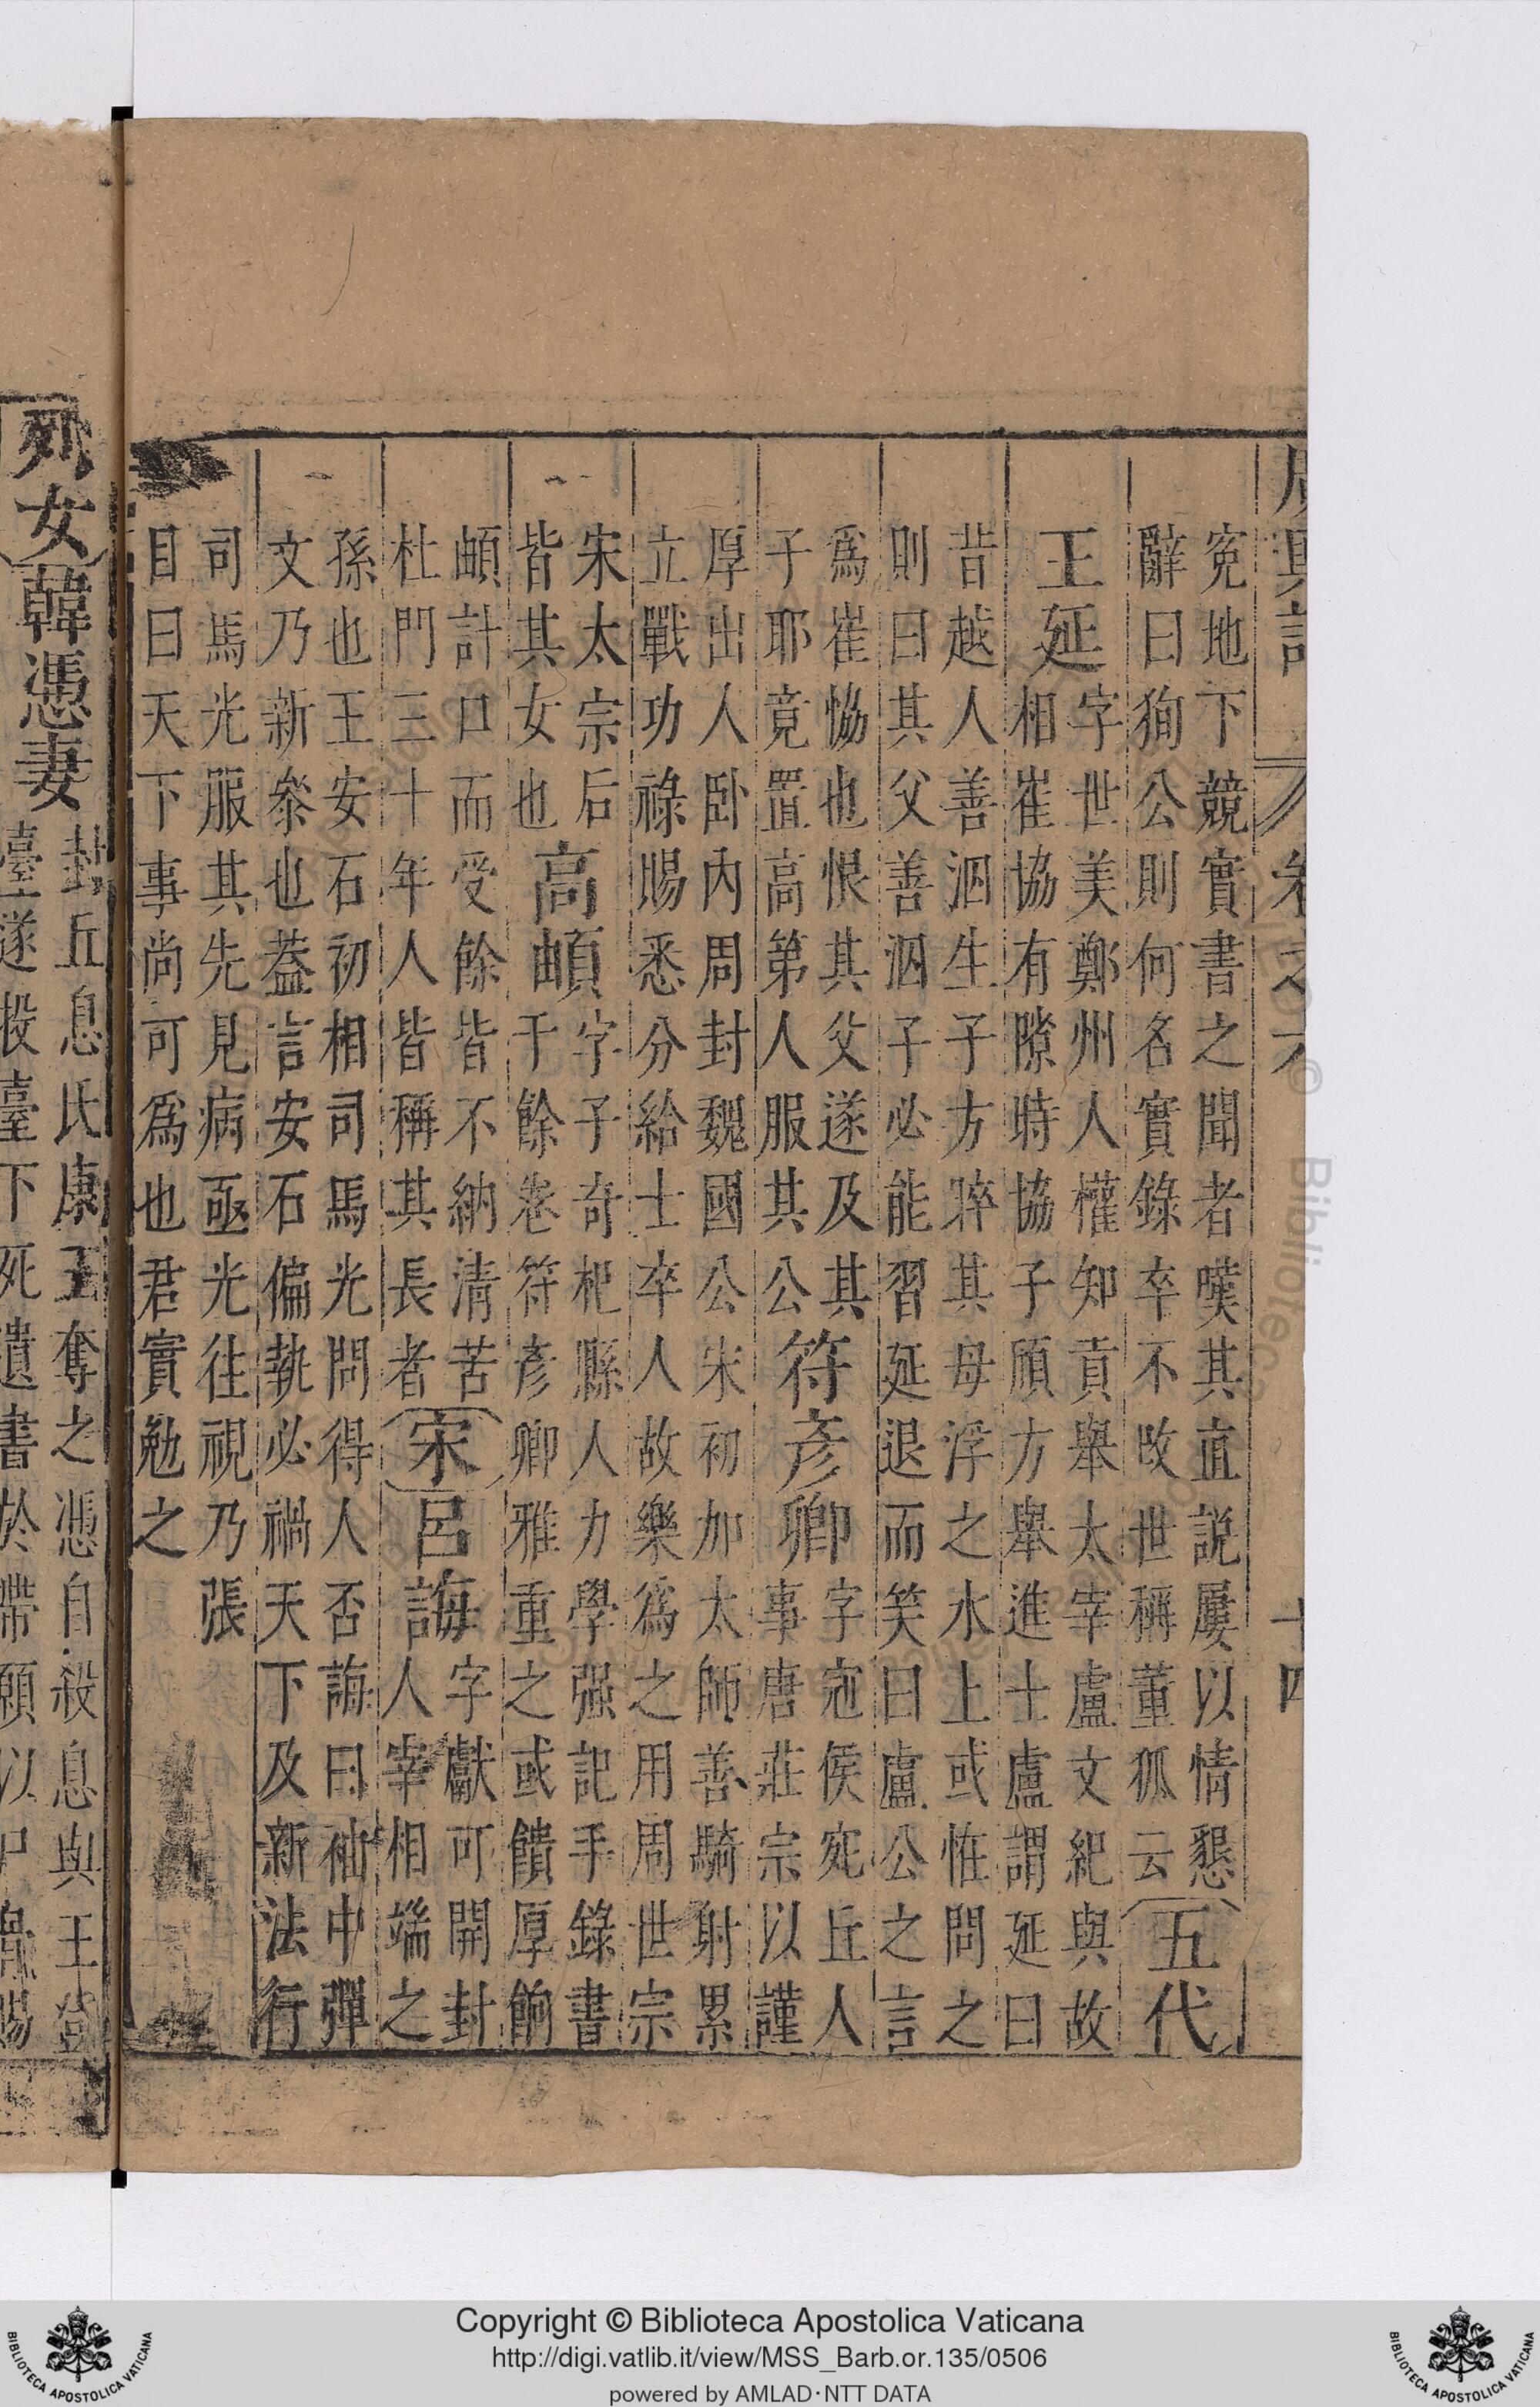 廣輿記 卷之六 十四
寃地下競實書之聞者嘆其直説屢以情懇
辭曰狥公則何名實錄卒不改世稱董狐云
五代
王延
字世美鄭州人權知貢舉太宰盧文紀與故
相崔協有隙時協子頎方舉進士盧謂延曰
昔越人善泅生子方晬其母浮之水上或恠問之
則曰其父善泅子必能習延退而笑曰盧公之言
爲崔恊也恨其父遂及其
子耶竟置高第人服其公
符彥卿
字冦侯宛丘人
事唐莊宗以謹
厚出人卧内周封魏國公宋初加太師善騎射累
立戰功祿賜悉分給士卒人故樂為之用周世宗
宋太宗后
皆其女也
高頔
字子奇杞縣人力學强記手錄書
千餘卷符彥卿雅重之或饋厚餉
頔計口而受餘皆不納清苦
杜門三十年人皆稱其長者
宋
呂誨
字獻可開封
人宰相端之
孫也王安石初相司馬光問得人否誨曰袖中彈
文乃新叅也葢言安石偏執必禍天下及新法行
司馬光服其先見病亟光往視乃張
目曰天下事尚可爲也君實勉之
列女
韓憑妻
封丘息氏康王奪之憑自殺息與王登
臺遂投臺下死遺書於帶願以尸
賜
Copyright © Biblioteca Apostolica Vaticana
http://digi.vatlib.it/view/MSS_Barb.or.135/0506
powered by AMLAD·NTT DATA
BIBLIOTECA APOSTOLICA VATICANA
BIBLIOTECA APOSTOLICA VATICANA